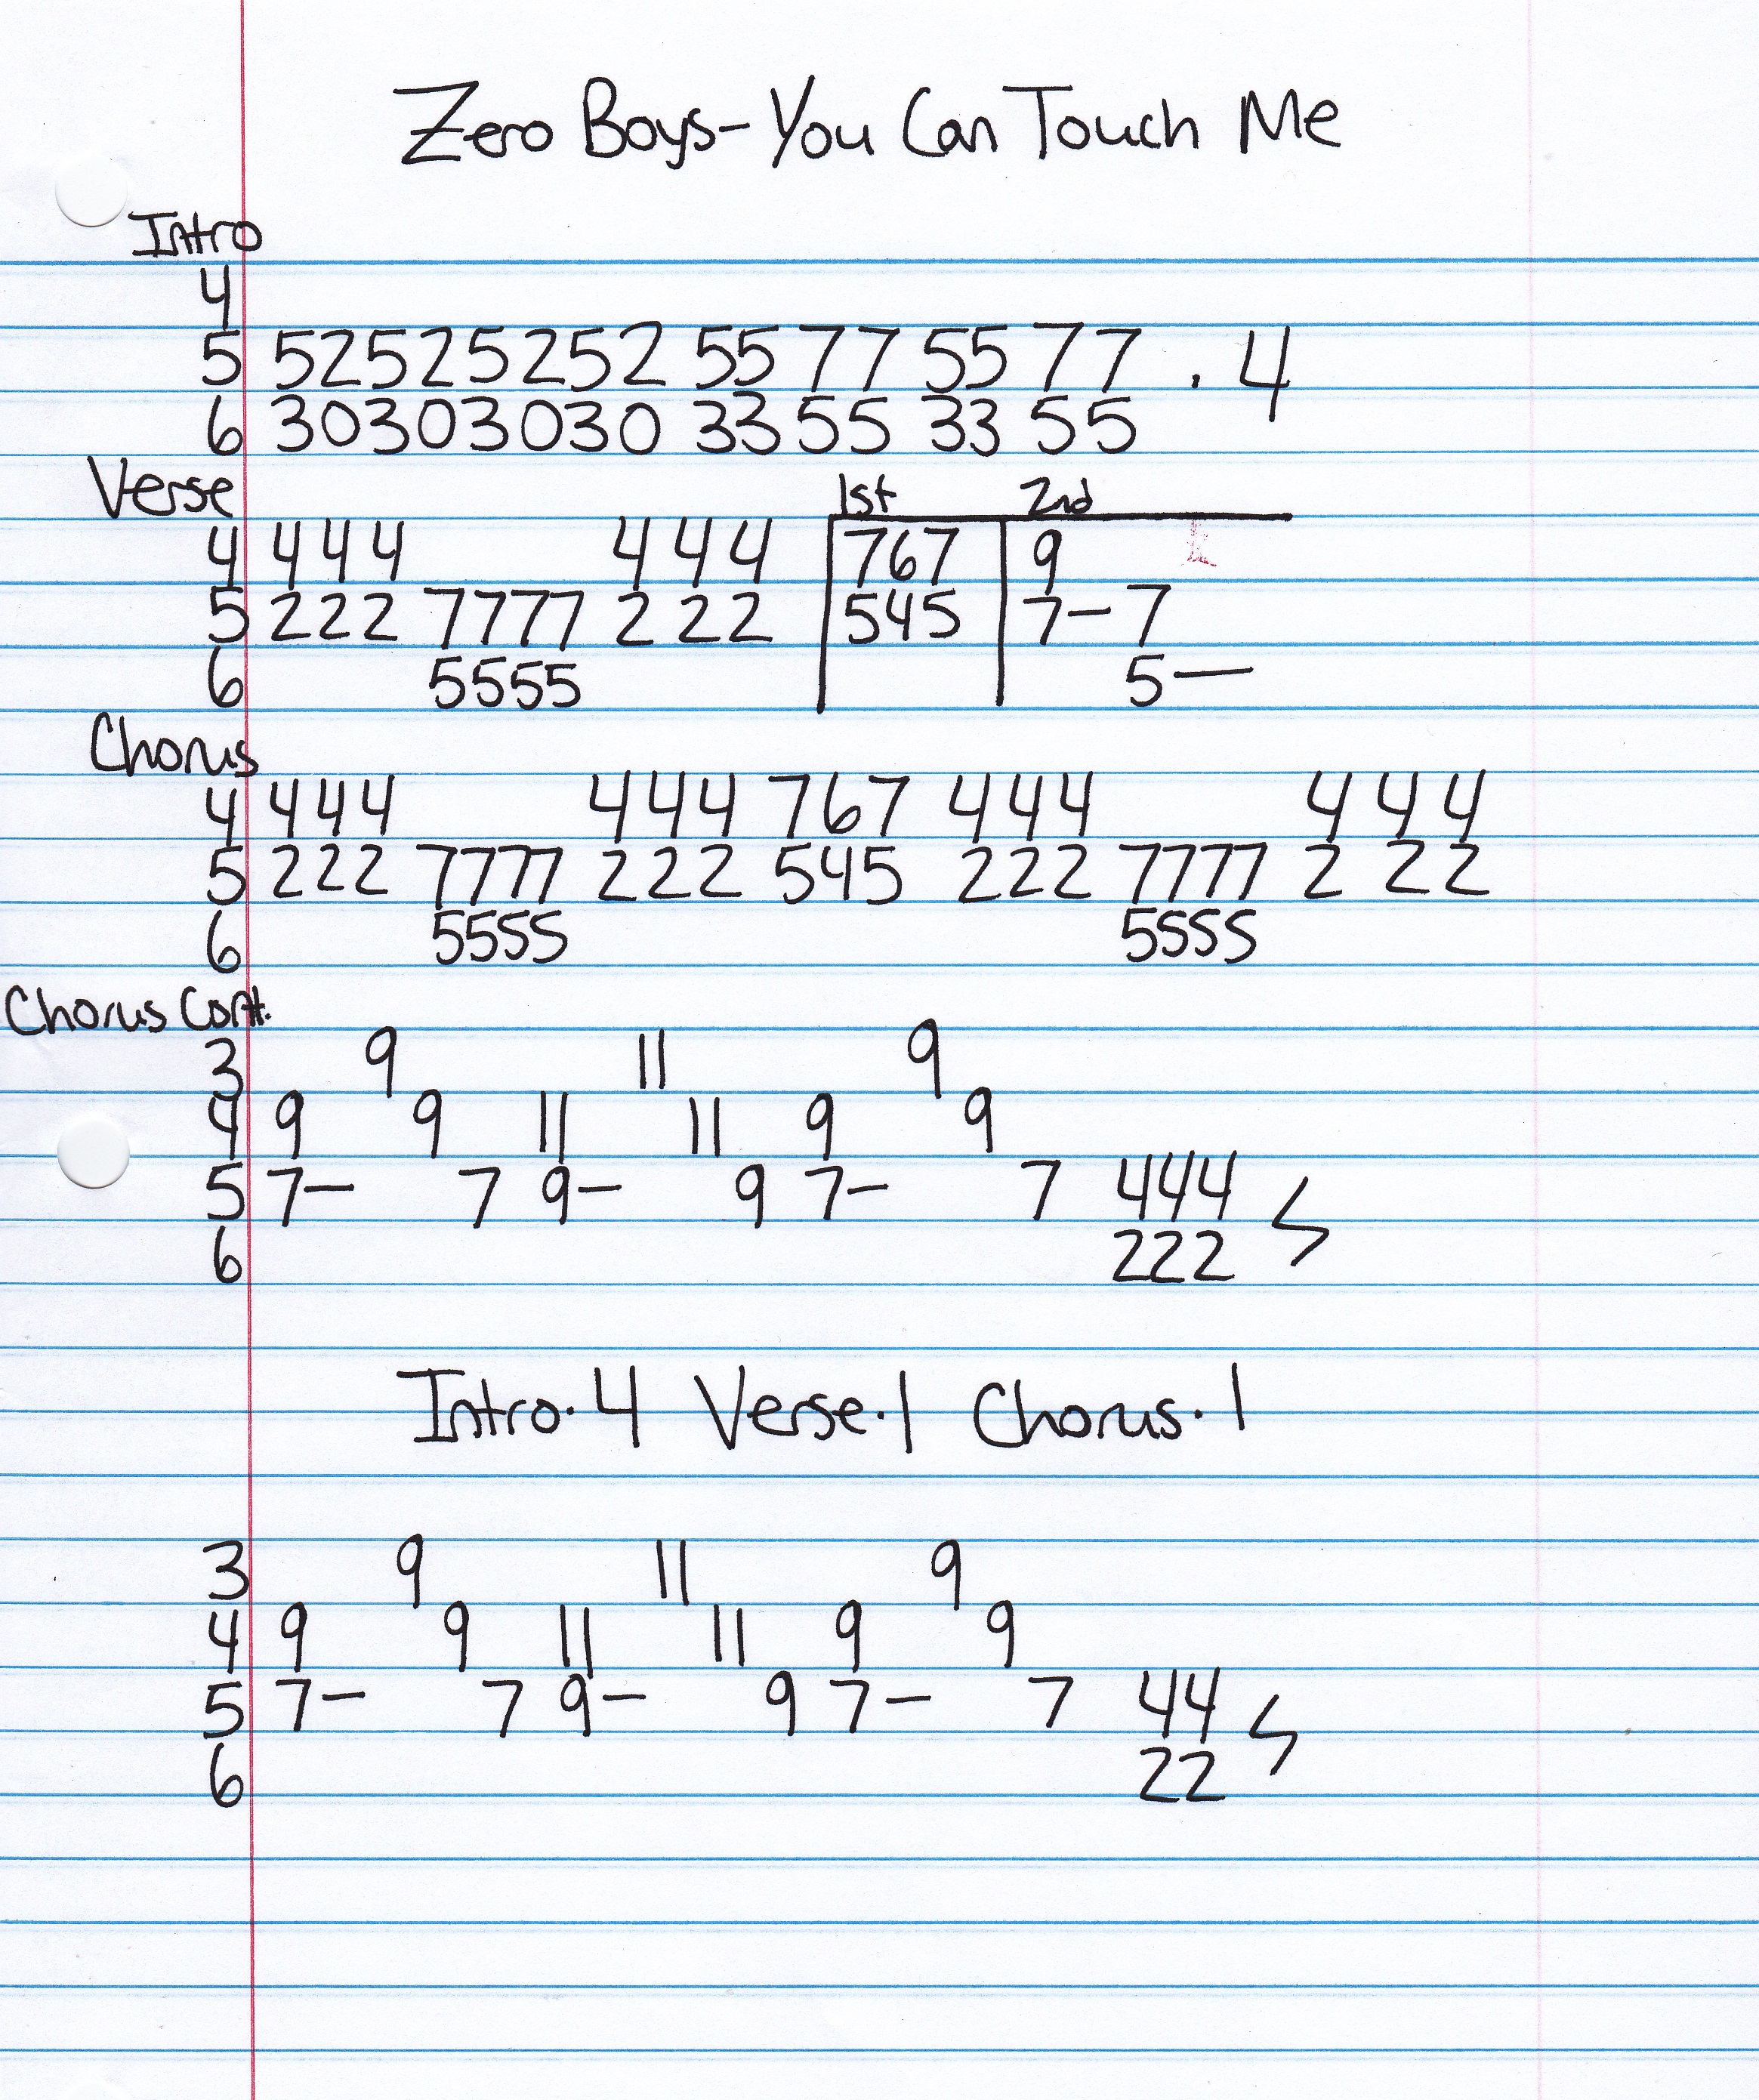 Zero Boys- You Can Touch Me
Intro
4
5 52525252 55 77 55 77 . 4
6 30303030 33 55 33 55
Verse 1st 2nd
4 444 444 767 9
5 222 7777 222 545 7- 7
6 5555 5—
Chorus
4 444 444 767 444 444
5 222 7777 222 545 222 7777 222
6 5555 5555
Chorus Cont.
3 9 11 9
4 9 9 11 11 9 9
5 7- 7 9- 9 7- 7 444
6 222
Intro·4 Verse·1 Chorus·1
3 9 11 9
4 9 9 11 11 9 9
5 7- 7 9- 9 7- 7 44
6 22